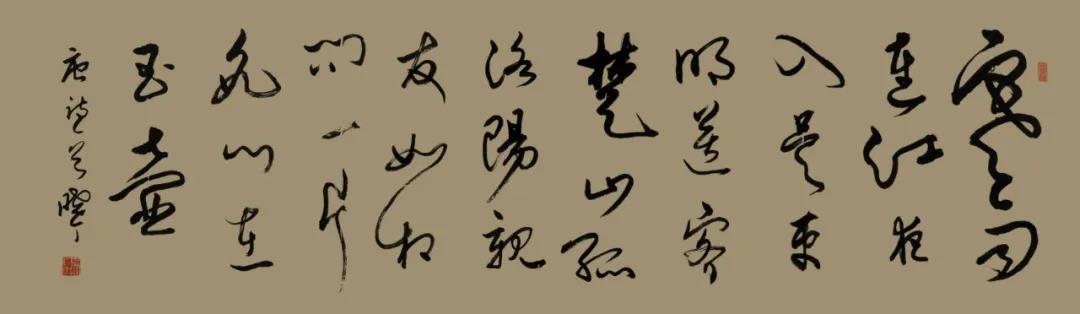 寒雨
連江夜
入吳平
明送客
楚山孤
洛陽親
友如相
問一片
冰心在
玉壺
唐詩